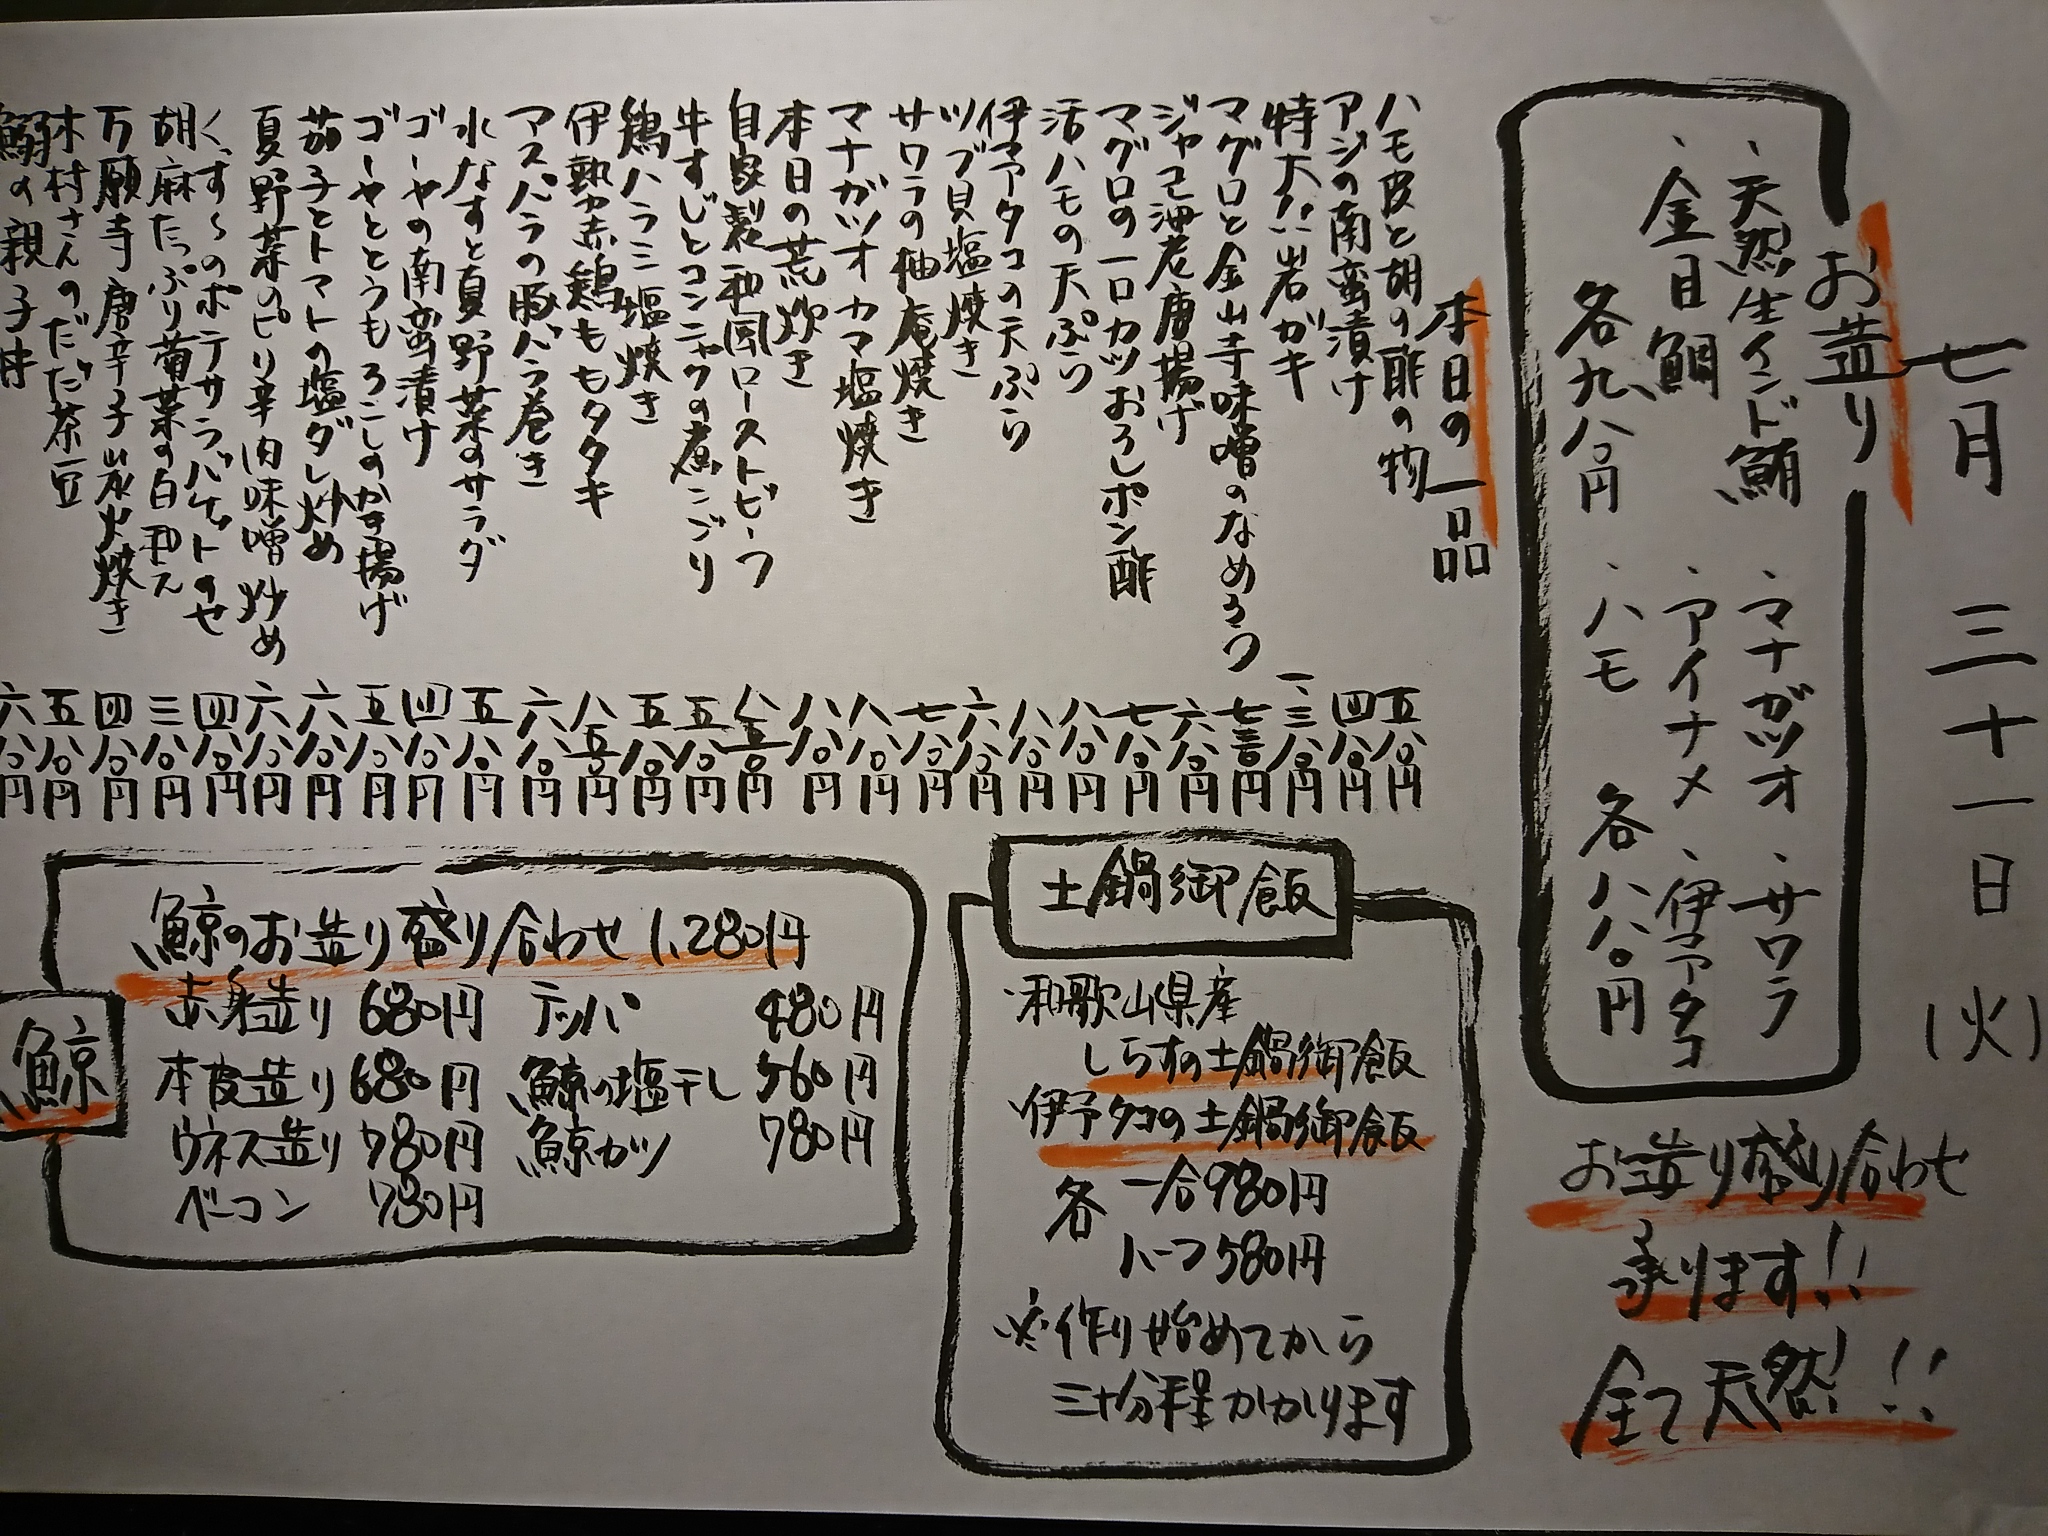 七月 三十一日 (火)
お造り
・天然生インド鮪
・金目鯛
各九八〇円
・マナガツオ ・サワラ
・アイナメ ・伊予タコ
・ハモ 各八八〇円
お造り盛り合わせ
承ります!!
全て天然!!!
本日の一品
ハモ皮と胡の酢の物 五八〇円
アジの南蛮漬け 四八〇円
特大 岩ガキ 一、三八〇円
マグロと金山寺味噌のなめろう 七三〇円
ジャコ油老唐揚げ 六八〇円
マグロの一口カツおろしポン酢 七八〇円
活ハモの天ぷら 八八〇円
伊予タコの天ぷら 八八〇円
ツブ貝塩焼き 六八〇円
サワラの柚庵焼き 七八〇円
マナガツオカマ塩焼き 八八〇円
本日の荒炊き 八八〇円
自家製和風ローストビーフ 八五〇円
牛すじとコンニャクの煮こごり 五八〇円
鶏ハラミ塩焼き 五八〇円
伊勢赤鶏ももタタキ 八五〇円
アスパラの豚バラ巻き 六八〇円
水なすと夏野菜のサラダ 五八〇円
ゴーヤの南蛮漬け 四八〇円
ゴーヤととうもろこしのかき揚げ 五八〇円
茄子とトマトの塩ダレ炒め 六八〇円
夏野菜のピリ辛肉味噌炒め 六八〇円
くずしのポテサラバケットのせ 四八〇円
胡麻たっぷり菊菜の白和え 三八〇円
万願寺唐辛子炭火焼き 四八〇円
木村さんのだだ茶豆 五八〇円
鰯の親子丼 六八〇円
土鍋御飯
・和歌山県産
しらすの土鍋御飯
・伊予タコの土鍋御飯
各 一合980円
ハーフ580円
※作り始めてから
三十分程かかります
鯨
鯨のお造り盛り合わせ 1,280円
赤身造り 680円 テッパ 480円
本皮造り 680円 鯨の塩干し 560円
ウネス造り 780円 鯨カツ 780円
ベーコン 780円